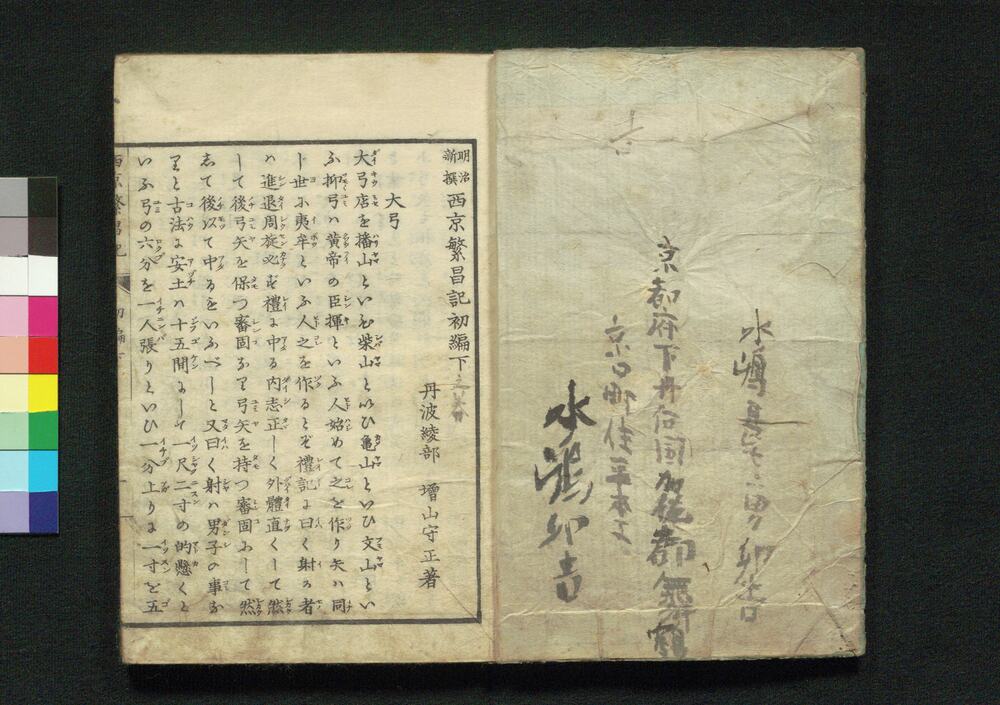 水嶋
京都府下丹后国加佐郡舞鶴
京口町住
水嶋卯吉
明治新撰西京繁昌記初編下之
丹波綾部 増山守正著
大弓
大弓店を播山といひ柴山といひ亀山といひ文山とい
ふ抑弓ハ黄帝の臣揮といふ人始めて之を作り矢ハ同
じ世に夷牟といふ人之を作るとぞ禮記に曰く射る者
ハ進退周旋必ず禮に中る内志正しく外體直くして然
して後弓矢を保つ審固なり弓矢を持つ審固にして然
して後以て中るをいふべしと又曰く射ハ男子の事な
りと古法に安土ハ十五間にして一尺二寸の的懸くと
いふ弓の六分を一人張りといひ一分上りに一寸を五
西京繁昌記 初編下